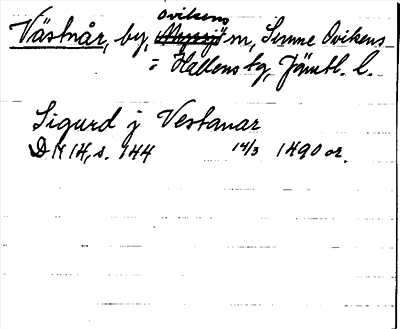 Ovikens
Västnår, by, Myssjö sn, Sunne Ovikens
= Hallens tg, Jämtl. l.
Sigurd j Vestanar
DN 14, s. 144 14/3 1490 or.